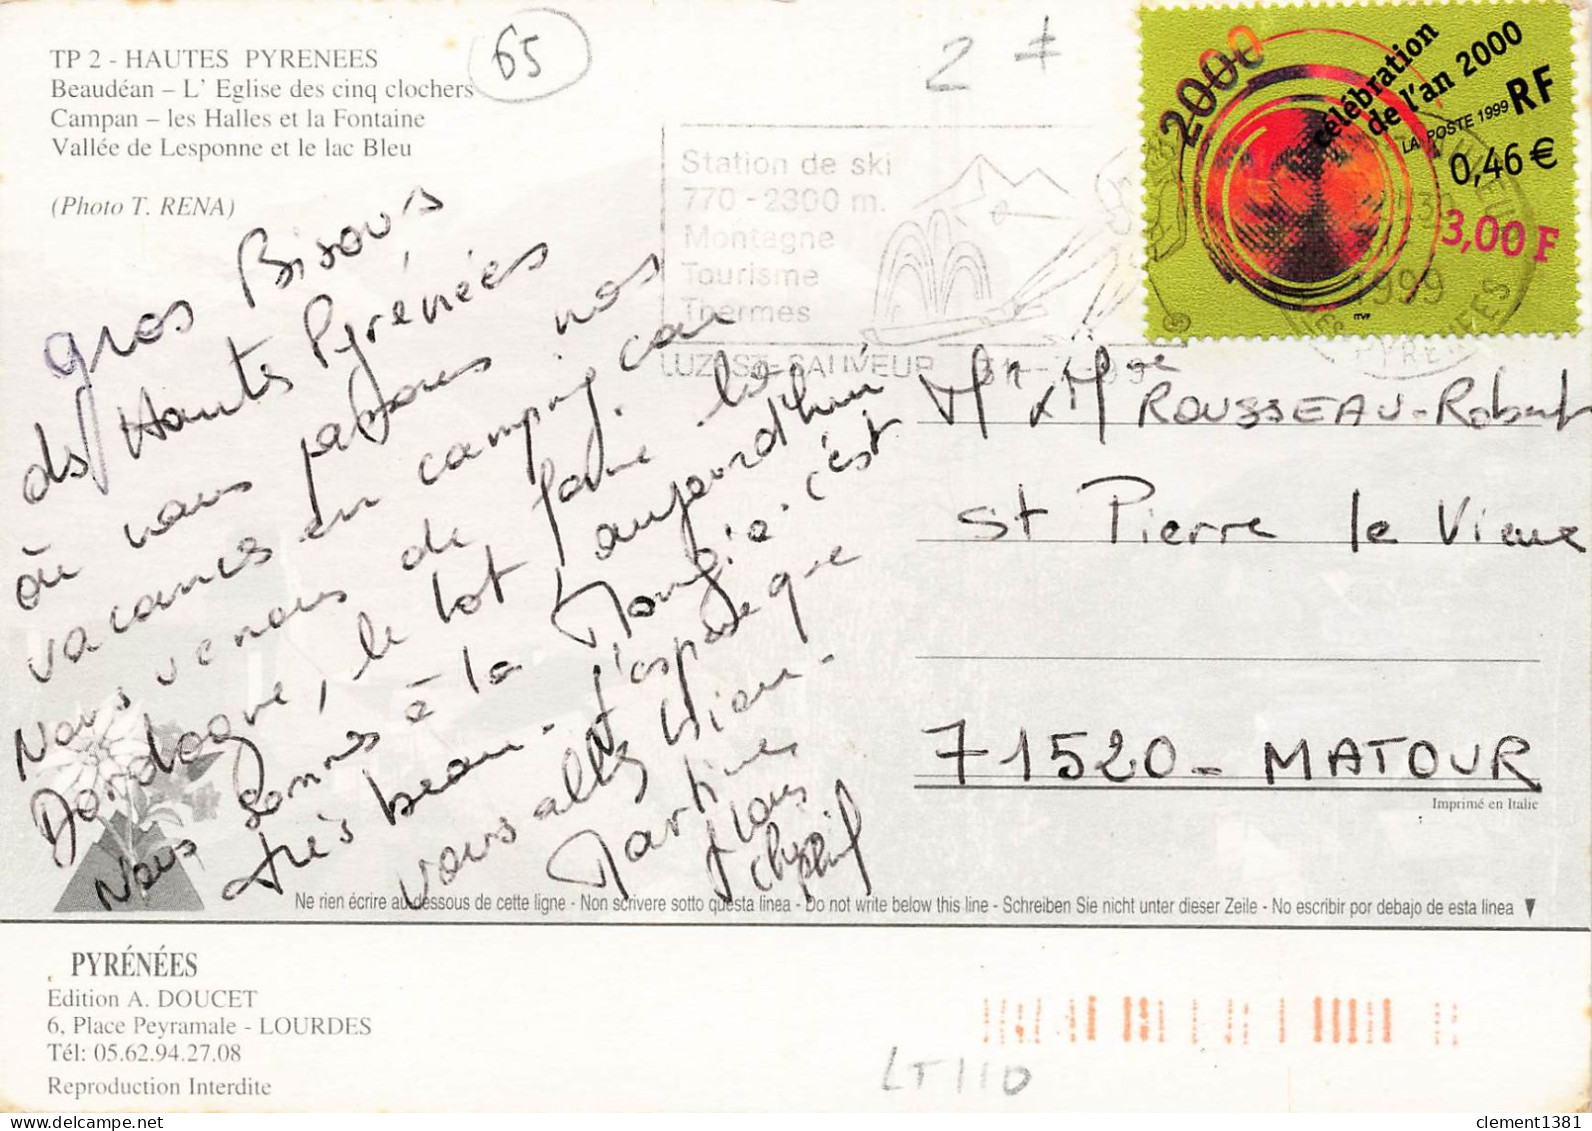 TP 2 - HAUTES PYRENEES
Beaudéan – L' Eglise des cinq clochers
Campan – les Halles et la Fontaine
Vallée de Lesponne et le lac Bleu
(Photo T. RENA)
65
2 
Station de ski
770 - 2300 m.
Montagne
Tourisme
Thermes
LUZ-ST-SAUVEUR
2000
célébration
de l'an 2000
LA POSTE 1999 RF
0,46 €
3,00 F
ITVF
1999
PYRENEES
gros Bisou's
ds Hautes Pyrénées
où nous passons nos
vacances en camping car
Nous venons de faire la
Dordogne, le lot aujourd'hui
Nous sommes à la Mongie. c'est
très beau - J'espère que
vous allez bien -
Martine
Mr & Mme ROUSSEAU-Robert
St Pierre le Vieux
71520 - MATOUR
Imprimé en Italie
Ne rien écrire au dessous de cette ligne - Non scrivere sotto questa linea - Do not write below this line - Schreiben Sie nicht unter dieser Zeile - No escribir por debajo de esta linea
PYRÉNÉES
Edition A. DOUCET
6, Place Peyramale - LOURDES
Tél: 05.62.94.27.08
Reproduction Interdite
LT110
clement1381